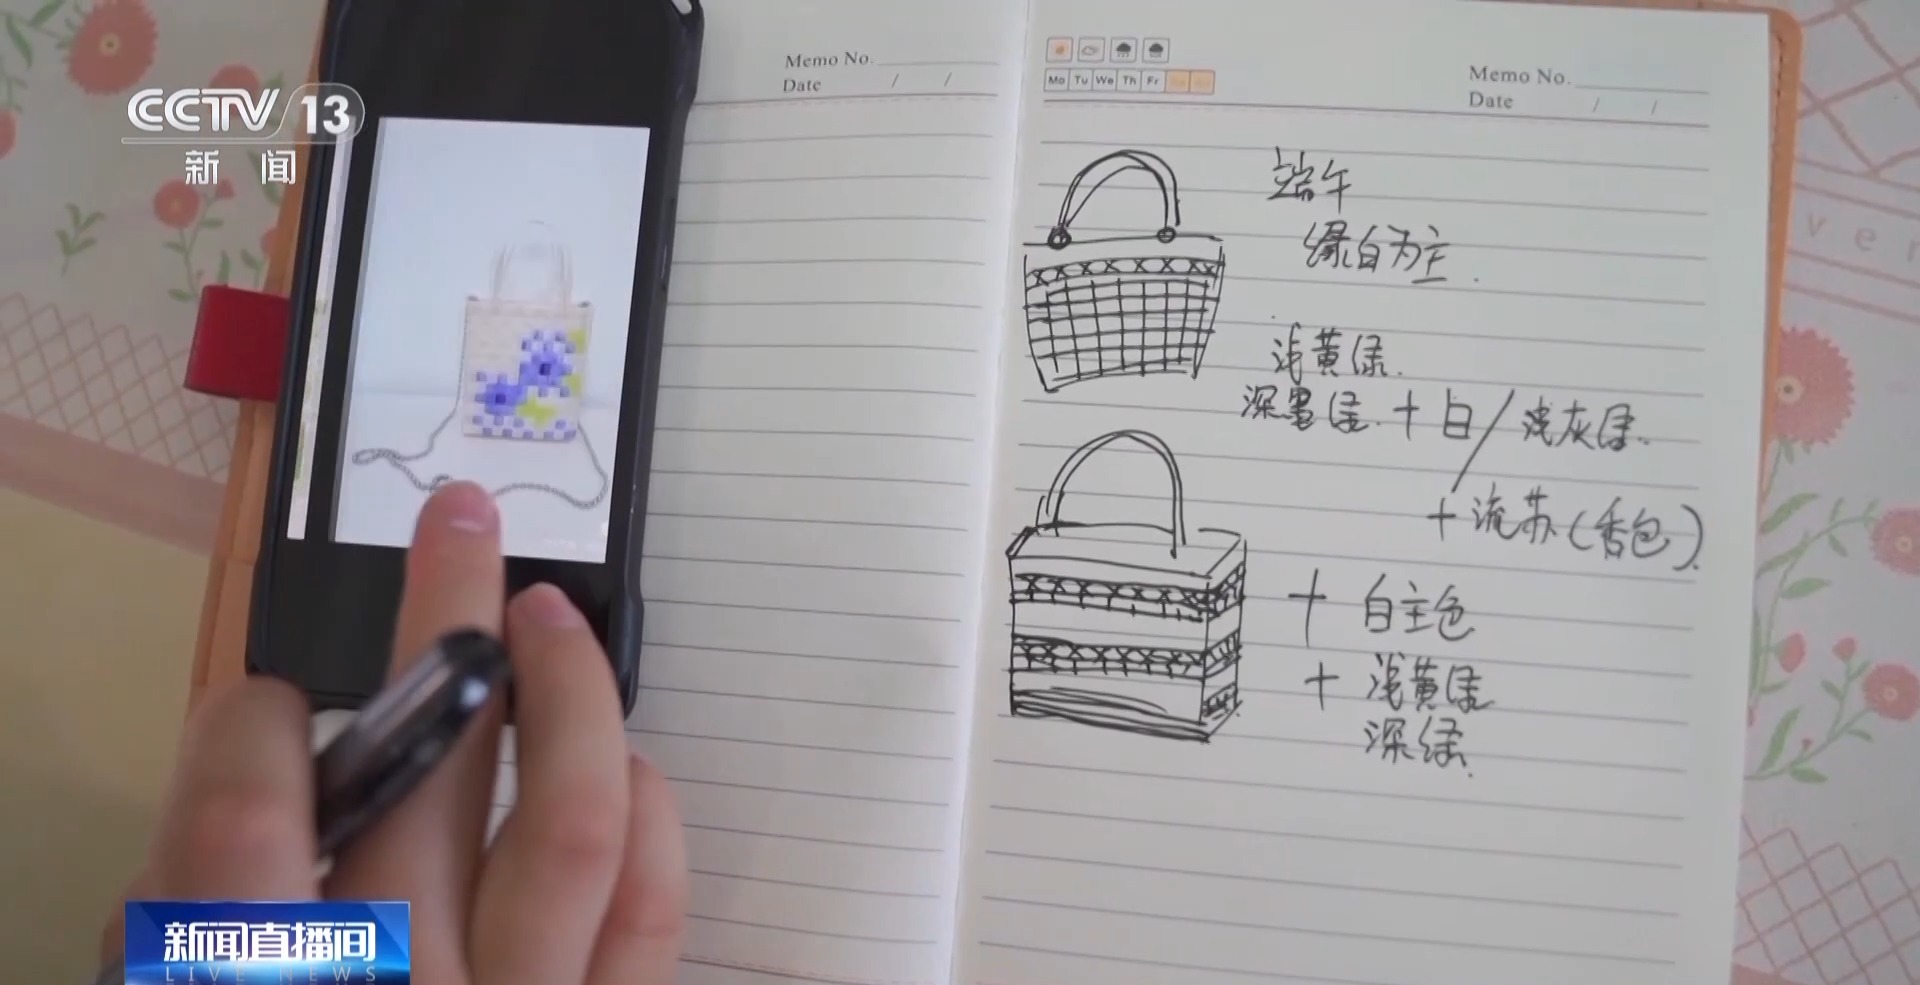 CCTV 13
新 闻
Memo No.
Date / /
Mo Tu We Th Fr
Memo No.
Date / /
端午
绿白为主.
浅黄绿.
深墨绿.+白/浅灰绿.
+流苏(香包).
+ 白主色
+ 浅黄绿
深绿.
新闻直播间
LIVE NEWS